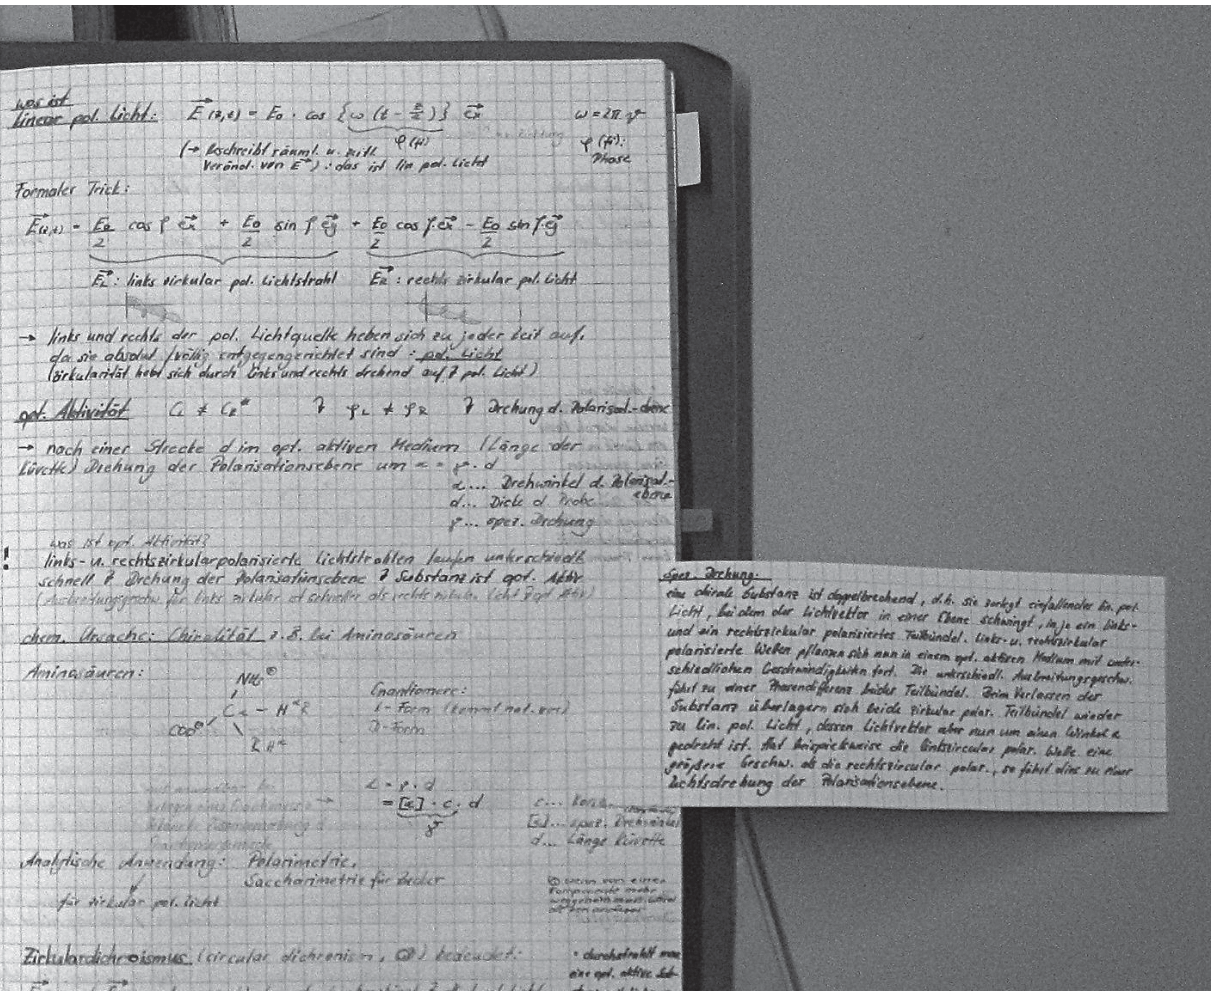 was ist
linear pol. Licht: E(z,t) = E0 · cos {ω (t - z/c)} ex ω = 2π ν
φ(t) φ(t):
(→ beschreibt räuml. u. zeitl. Phase
Veränd. von E) : das ist lin pol. Licht
Formaler Trick:
E(z,t) = E0/2 cos φ ex + E0/2 sin φ ey + E0/2 cos φ·ex - E0/2 sin φ·ey
EL : links zirkular pol. Lichtstrahl ER : rechts zirkular pol. Licht
→ links und rechts der pol. Lichtquelle heben sich zu jeder Zeit auf,
da sie absolut / völlig entgegengerichtet sind : pol. Licht
(Zirkularität hebt sich durch links und rechts drehend auf pol. Licht)
opt. Aktivität CL ≠ CR* φL ≠ φR Drehung d. Polarisat.-ebene
→ nach einer Strecke d im opt. aktiven Medium (Länge der
Küvette) Drehung der Polarisationsebene um α = ρ · d
α ... Drehwinkel d. Polarisat.-
ebene
d... Dicke d Probe
ρ... spez. Drehung
was ist opt. Aktivität?
! links- u. rechtszirkularpolarisierte Lichtstrahlen laufen unterschiedl.
schnell Drehung der Polarisationsebene Substanz ist opt. Aktiv
(Ausbreitungsgeschw. für links zirkular ist schneller als rechts zirkular
chem. Ursache: Chiralität z.B. bei Aminosäuren
Aminosäuren:
Enantiomere:
L-Form (kommt nat. vor)
D-Form
α = ρ · d
= [α] · c · d
c... Konz.
[α]... spez. Drehwinkel
d... Länge Küvette
Analytische Anwendung: Polarimetrie,
Saccharimetrie für Zucker
für zirkular pol. Licht
wenn von einer
Komponente mehr
Zirkulardichroismus (circular dichroism, CD) bedeutet:
· durchstrahlt man
eine opt. aktive Sub-
Spez. Drehung:
eine chirale Substanz ist doppelbrechend, d.h. sie zerlegt einfallendes lin. pol.
Licht, bei dem der Lichtvektor in einer Ebene schwingt, in je ein links-
und ein rechtszirkular polarisiertes Teilbündel. Links- u. rechtszirkular
polarisierte Wellen pflanzen sich nun in einem opt. aktiven Medium mit unter-
schiedlichen Geschwindigkeiten fort. Die unterschiedl. Ausbreitungsgeschw.
führt zu einer Phasendifferenz beider Teilbündel. Beim Verlassen der
Substanz überlagern sich beide zirkular polar. Teilbündel wieder
zu lin. pol. Licht, dessen Lichtvektor aber nun um einen Winkel α
gedreht ist. Hat beispielsweise die linkscircular polar. Welle eine
größere Geschw. als die rechtscircular polar., so führt dies zu einer
Rechtsdrehung der Polarisationsebene.